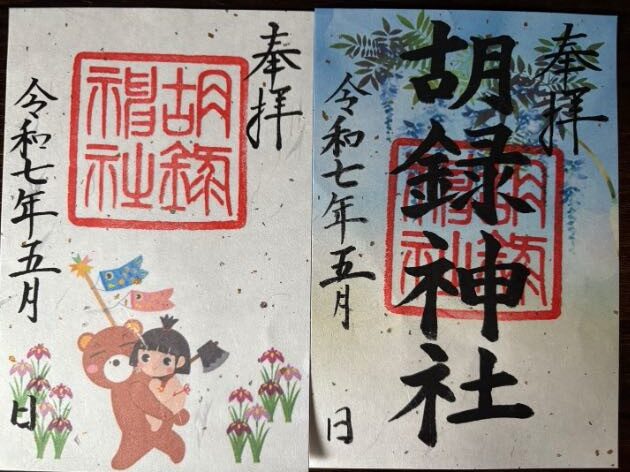 奉拝
胡録
神社
令和七年五月 日
奉拝
胡録神社
胡録
神社
令和七年五月 日